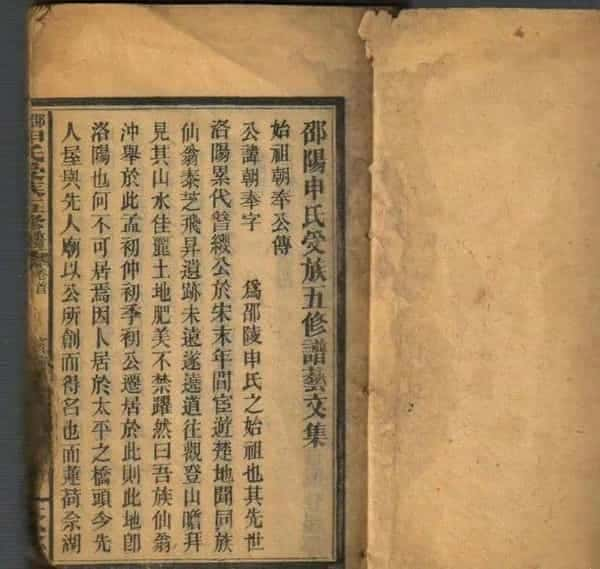 邵陽申氏受族五修譜藝文集
始祖朝奉公傳
公諱朝奉字　為邵陵申氏之始祖也其先世
洛陽累代簪纓公於宋末年間宦遊楚地聞同族
仙翁泰芝飛昇遺跡未遠遂遶道往觀登山瞻拜
見其山水佳麗土地肥美不禁躍然曰吾族仙翁
沖舉於此孟初仲初季初公遷居於此則此地卽
洛陽也何不可居焉因人居於太平之橋頭今先
人屋與先人廟以公所創而得名也而蓮荷佘湖